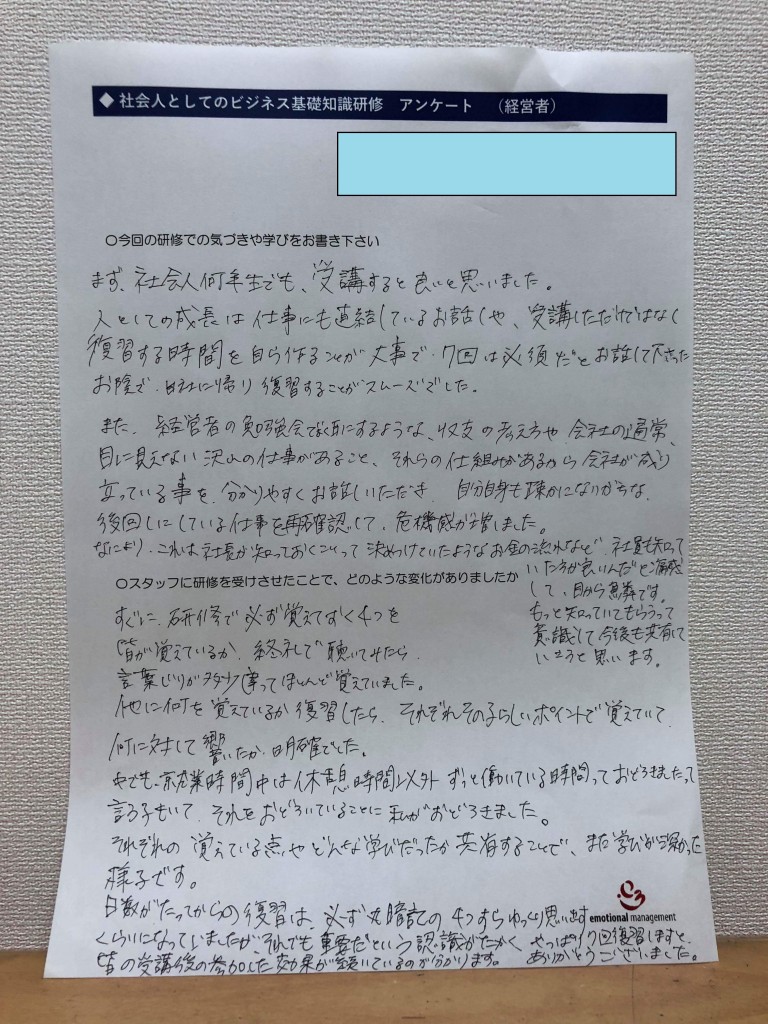 ◆ 社会人としてのビジネス基礎知識研修 アンケート （経営者）
○今回の研修での気づきや学びをお書き下さい
まず、社会人何年生でも、受講すると良いと思いました。
人としての成長は仕事にも直結しているお話しや、受講しただけではなく
復習する時間を自ら作ることが大事で、7回は必須だとお話して下さった
お陰で、自社に帰り復習することがスムーズでした。
また、経営者の勉強会で耳にするような、収支の考え方や、会社の通常、
目に見えない沢山の仕事があること、それらの仕組みがあるから会社が成り
立っている事を、分かりやすくお話しいただき、自分自身も疎かになりがちな、
後回しにしている仕事を再確認して、危機感が増しました。
なにより、これは社長が知っておくことって決めつけていたようなお金の流れなど、社員も知って
いた方が良いんだと痛感
して、目から鱗です。
もっと知っていてもらうって
意識して今後も共有して
いこうと思います。
○スタッフに研修を受けさせたことで、どのような変化がありましたか
すぐに、研修で必ず覚えておく4つを
皆が覚えているか、終礼で聴いてみたら、
言葉じりが多少違ってほとんど覚えていました。
他に何を覚えているか復習したら、それぞれその子らしいポイントで覚えていて、
何に対して響いたか、明確でした。
中でも、就業時間中は休憩時間以外ずっと働いている時間っておどろきましたって
言う子もいて、それをおどろいていることに私がおどろきました。
それぞれの覚えている点やどんな学びだったか共有することで、また学びが深かった
様子です。
日数がたってからの復習は、必ず丸暗記の4つすらゆっくり思い出す
くらいになっていましたが、それでも重要だという認識がたかく、やっぱり7回復習しますと、
皆の受講後の参加した効果が続いているのが分かります。ありがとうございました。
emotional management